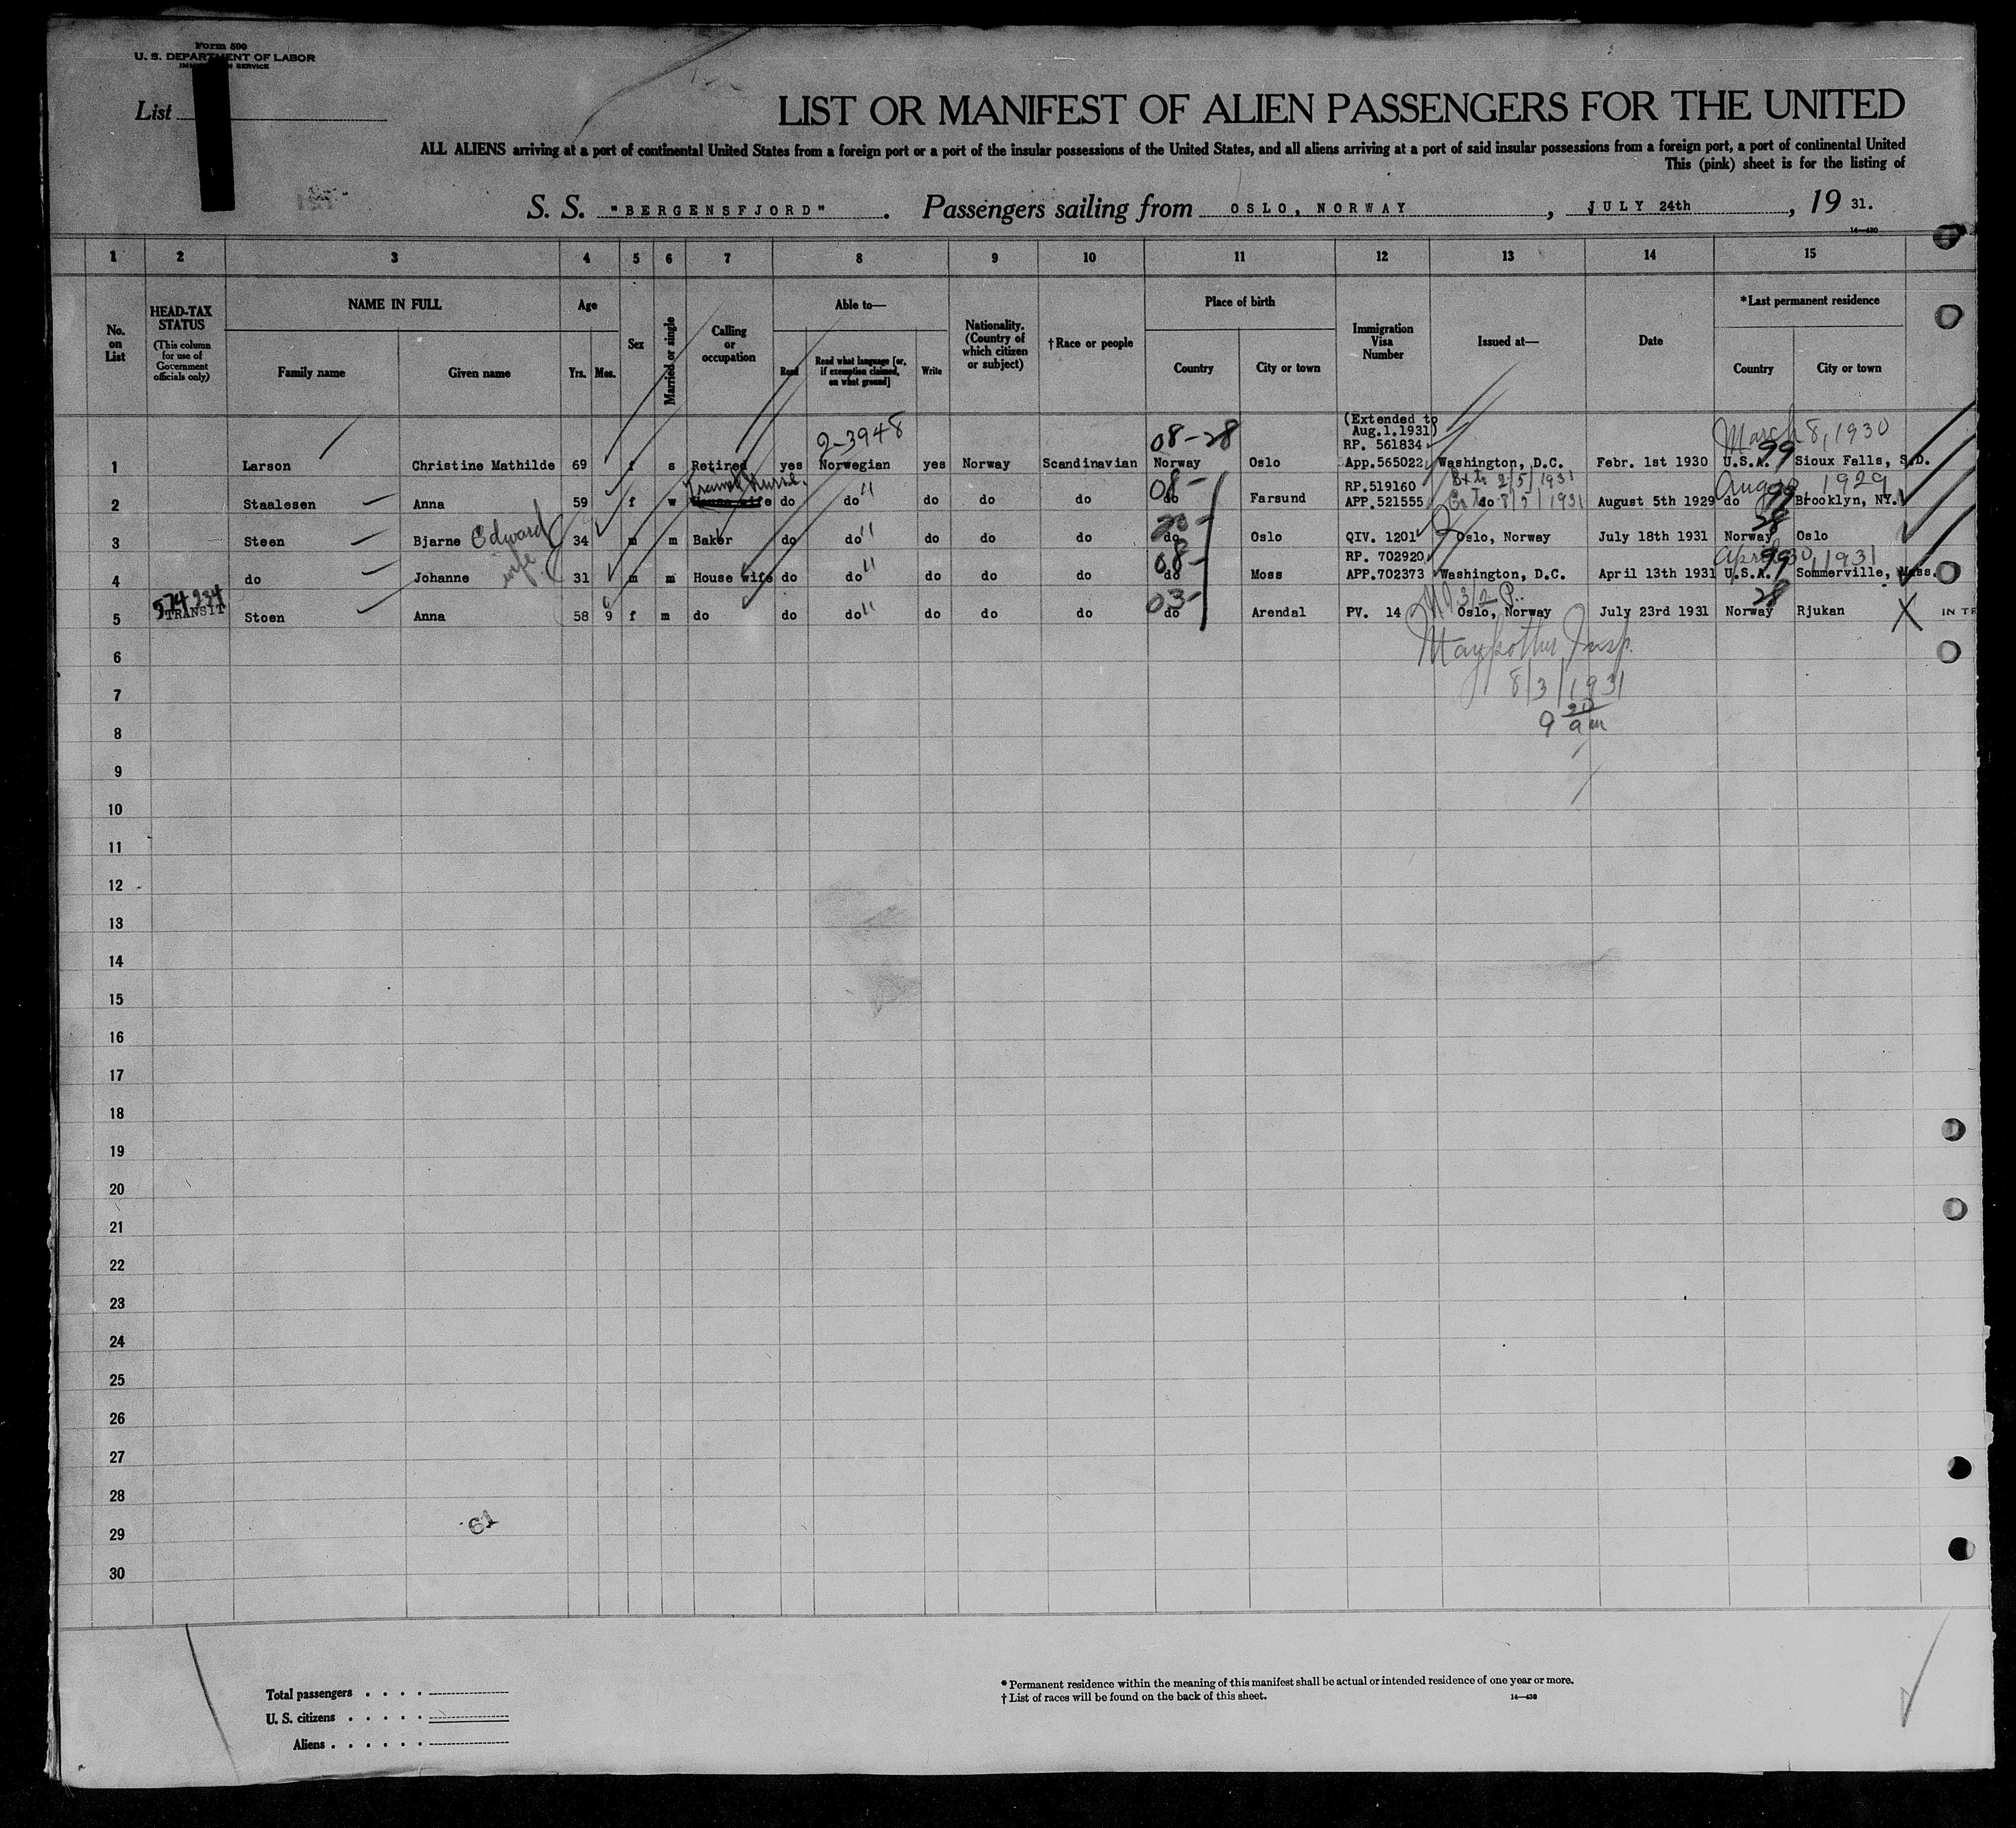 Form 500
U. S. DEPARTMENT OF LABOR
SERVICE
List
LIST OR MANIFEST OF ALIEN PASSENGERS FOR THE UNITED
ALL ALIENS arriving at a port of continental United States from a foreign port or a port of the insular possessions of the United States, and all aliens arriving at a port of said insular possessions from a foreign port, a port of continental United
This (pink) sheet is for the listing of
S. S. "BERGENSFJORD". Passengers sailing from OSLO, NORWAY, JULY 24th, 19 31.
14—430
1 2 3 4 5 6 7 8 9 10 11 12 13 14 15
No. on List
HEAD-TAX STATUS (This column for use of Government officials only)
NAME IN FULL
Family name Given name
Age
Yrs. Mos.
Sex
Married or single
Calling or occupation
Able to—
Read Read what language [or, if exemption claimed, on what ground] Write
Nationality. (Country of which citizen or subject)
†Race or people
Place of birth
Country City or town
Immigration Visa Number
Issued at—
Date
*Last permanent residence
Country City or town
(Extended to
Aug.1.1931)
RP. 561834
2-3948 08-28 March 8, 1930
1 Larson Christine Mathilde 69 f s Retired yes Norwegian yes Norway Scandinavian Norway Oslo App.565022 Washington, D.C. Febr. 1st 1930 U.S.A. 99 Sioux Falls, S.D.
Nurse. 08- RP.519160 Ext. 2/5/1931 Aug 1929
2 Staalesen Anna 59 f w House wife do do " do do do do Farsund APP.521555 do 8/5/1931 August 5th 1929 do 99 Brooklyn, NY.
3 Steen Bjarne Edward 34 m m Baker do do " do do do do Oslo QIV. 1201 Oslo, Norway July 18th 1931 Norway 28 Oslo
wife 08- RP. 702920 April 30, 1931
4 do Johanne 31 m m House wife do do " do do do do Moss APP.702373 Washington, D.C. April 13th 1931 U.S.A. 99 Sommerville, Mass.
574234
5 TRANSIT Stoen Anna 58 9 f m do do do " do do do 03- do Arendal PV. 14 Oslo, Norway July 23rd 1931 Norway 28 Rjukan X IN TR
6
Insp.
7
8/3/1931
8
9 20 am
9
10
11
12
13
14
15
16
17
18
19
20
21
22
23
24
25
26
27
28
29
61
30
Total passengers
U. S. citizens
Aliens
* Permanent residence within the meaning of this manifest shall be actual or intended residence of one year or more.
† List of races will be found on the back of this sheet.
14—430